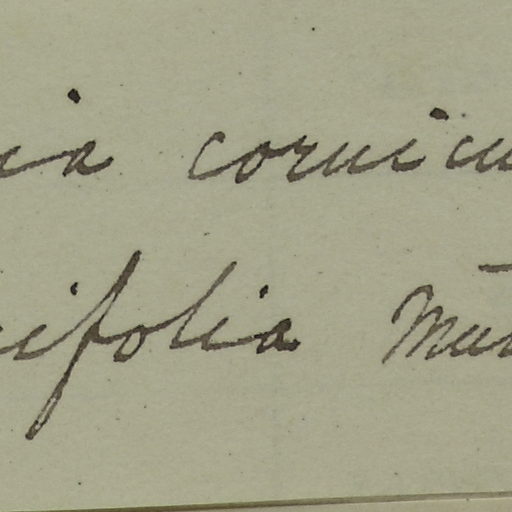 ia cornicu
ifolia Mu